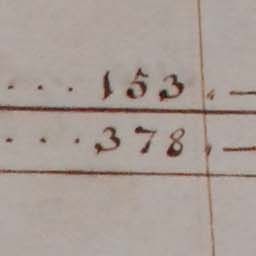 ... 153. —
... 378. —